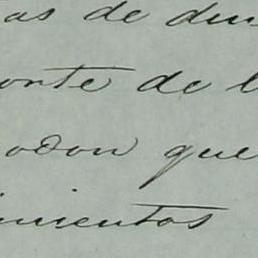 as de din
onte de l
odon que
imientos